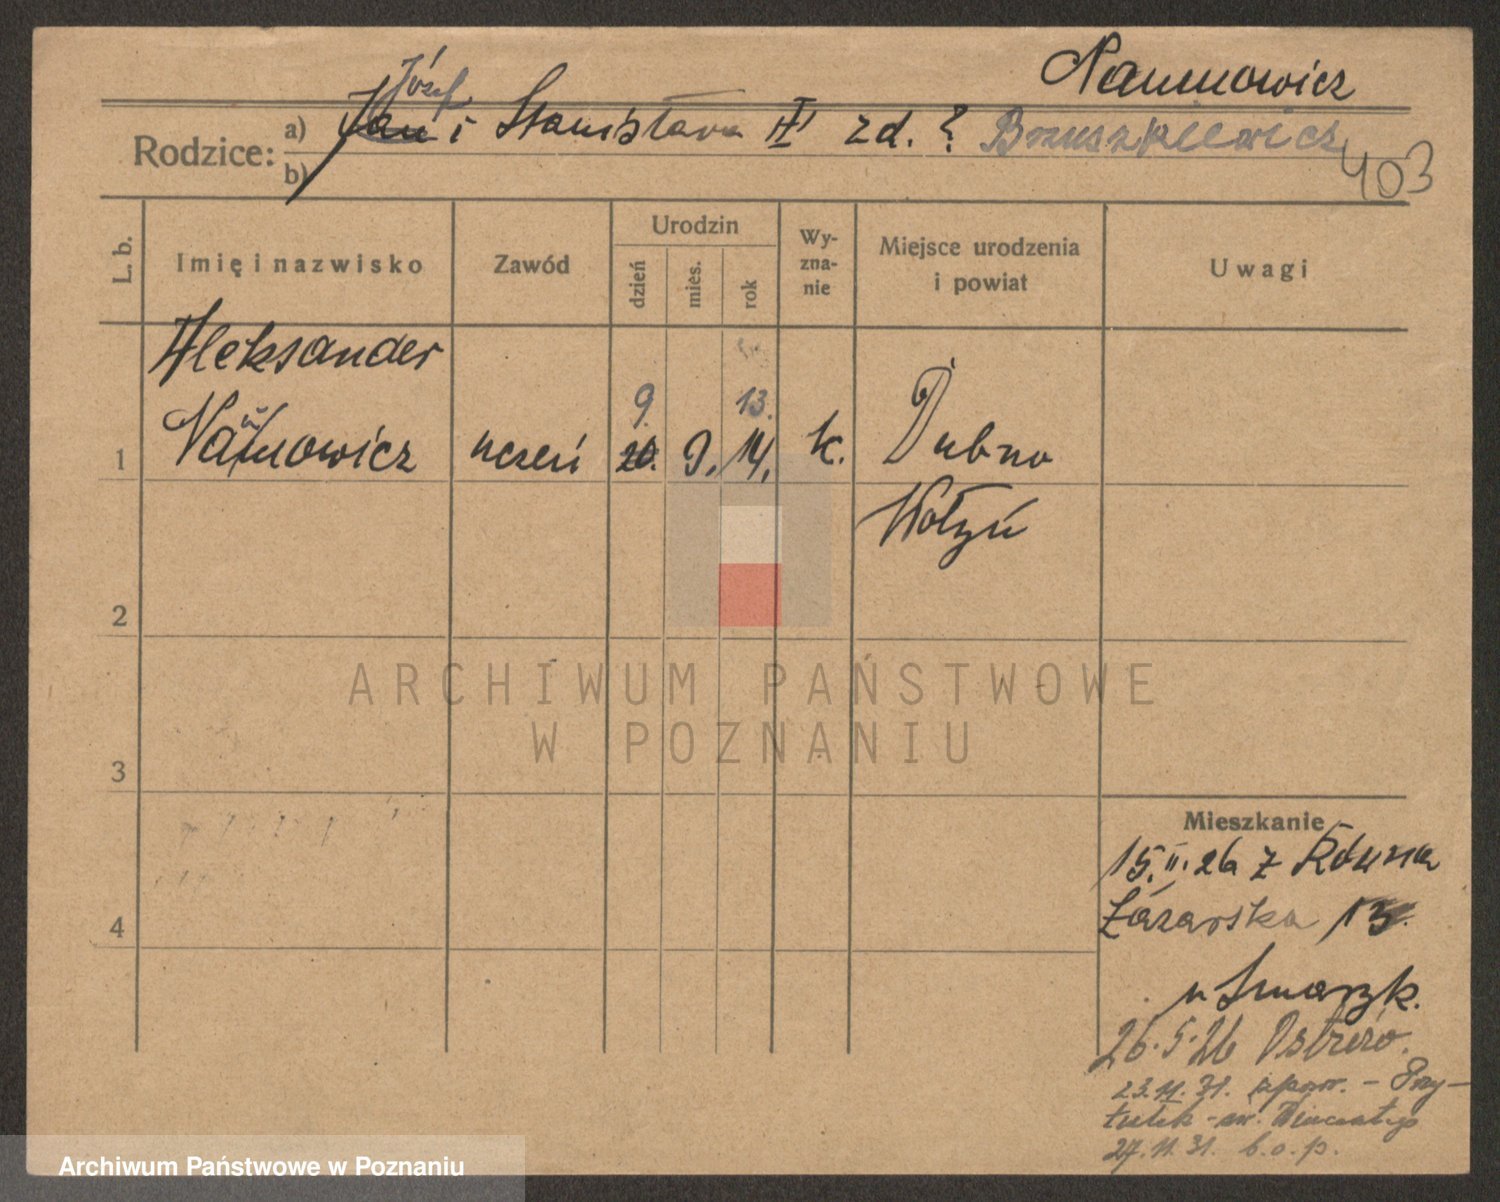 Naumowicz
Józef
Rodzice: a) Jan i Stanisława II zd. ? Bruszkiewicz
b)
403
L. b.
Imię i nazwisko
Zawód
Urodzin
dzień
mies.
rok
Wy-
zna-
nie
Miejsce urodzenia
i powiat
Uwagi
Aleksander
9. 13.
1 Naumowicz uczeń 20. 9. 14. k. Dubno
Wołyń
2
3
4
ARCHIWUM PAŃSTWOWE
W POZNANIU
Mieszkanie
15. II. 26 z Równa
Łazarska 13.
u Smarzk.
26. 5. 26 Ostrów.
23. 11. 31. - Przy-
tułek - św. Wincentego
27. 11. 31. b. o. p.
Archiwum Państwowe w Poznaniu